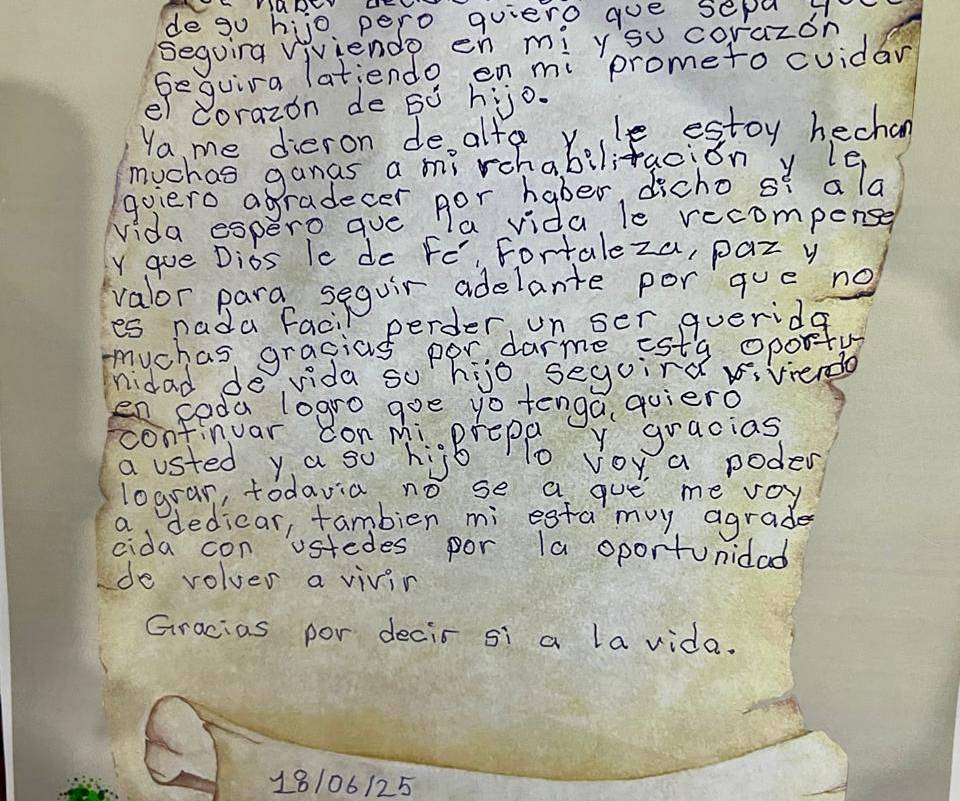 haber
de su hijo pero quiero que sepa
seguira viviendo en mi y su corazón
seguira latiendo en mi prometo cuidar
el corazón de su hijo.
Ya me dieron de alta y le estoy hechan
muchas ganas a mi rehabilitación y le
quiero agradecer por haber dicho si a la
vida espero que la vida le recompense
y que Dios le de Fé, Fortaleza, paz y
valor para seguir adelante por que no
es nada facil perder un ser querido
muchas gracias por darme esta oportu-
nidad de vida su hijo seguira viviendo
en cada logro que yo tenga, quiero
continuar con mi prepa y gracias
a usted y a su hijo lo voy a poder
lograr, todavia no se a qué me voy
a dedicar, tambien mi esta muy agrade
cida con ustedes por la oportunidad
de volver a vivir
Gracias por decir si a la vida.
18/06/25